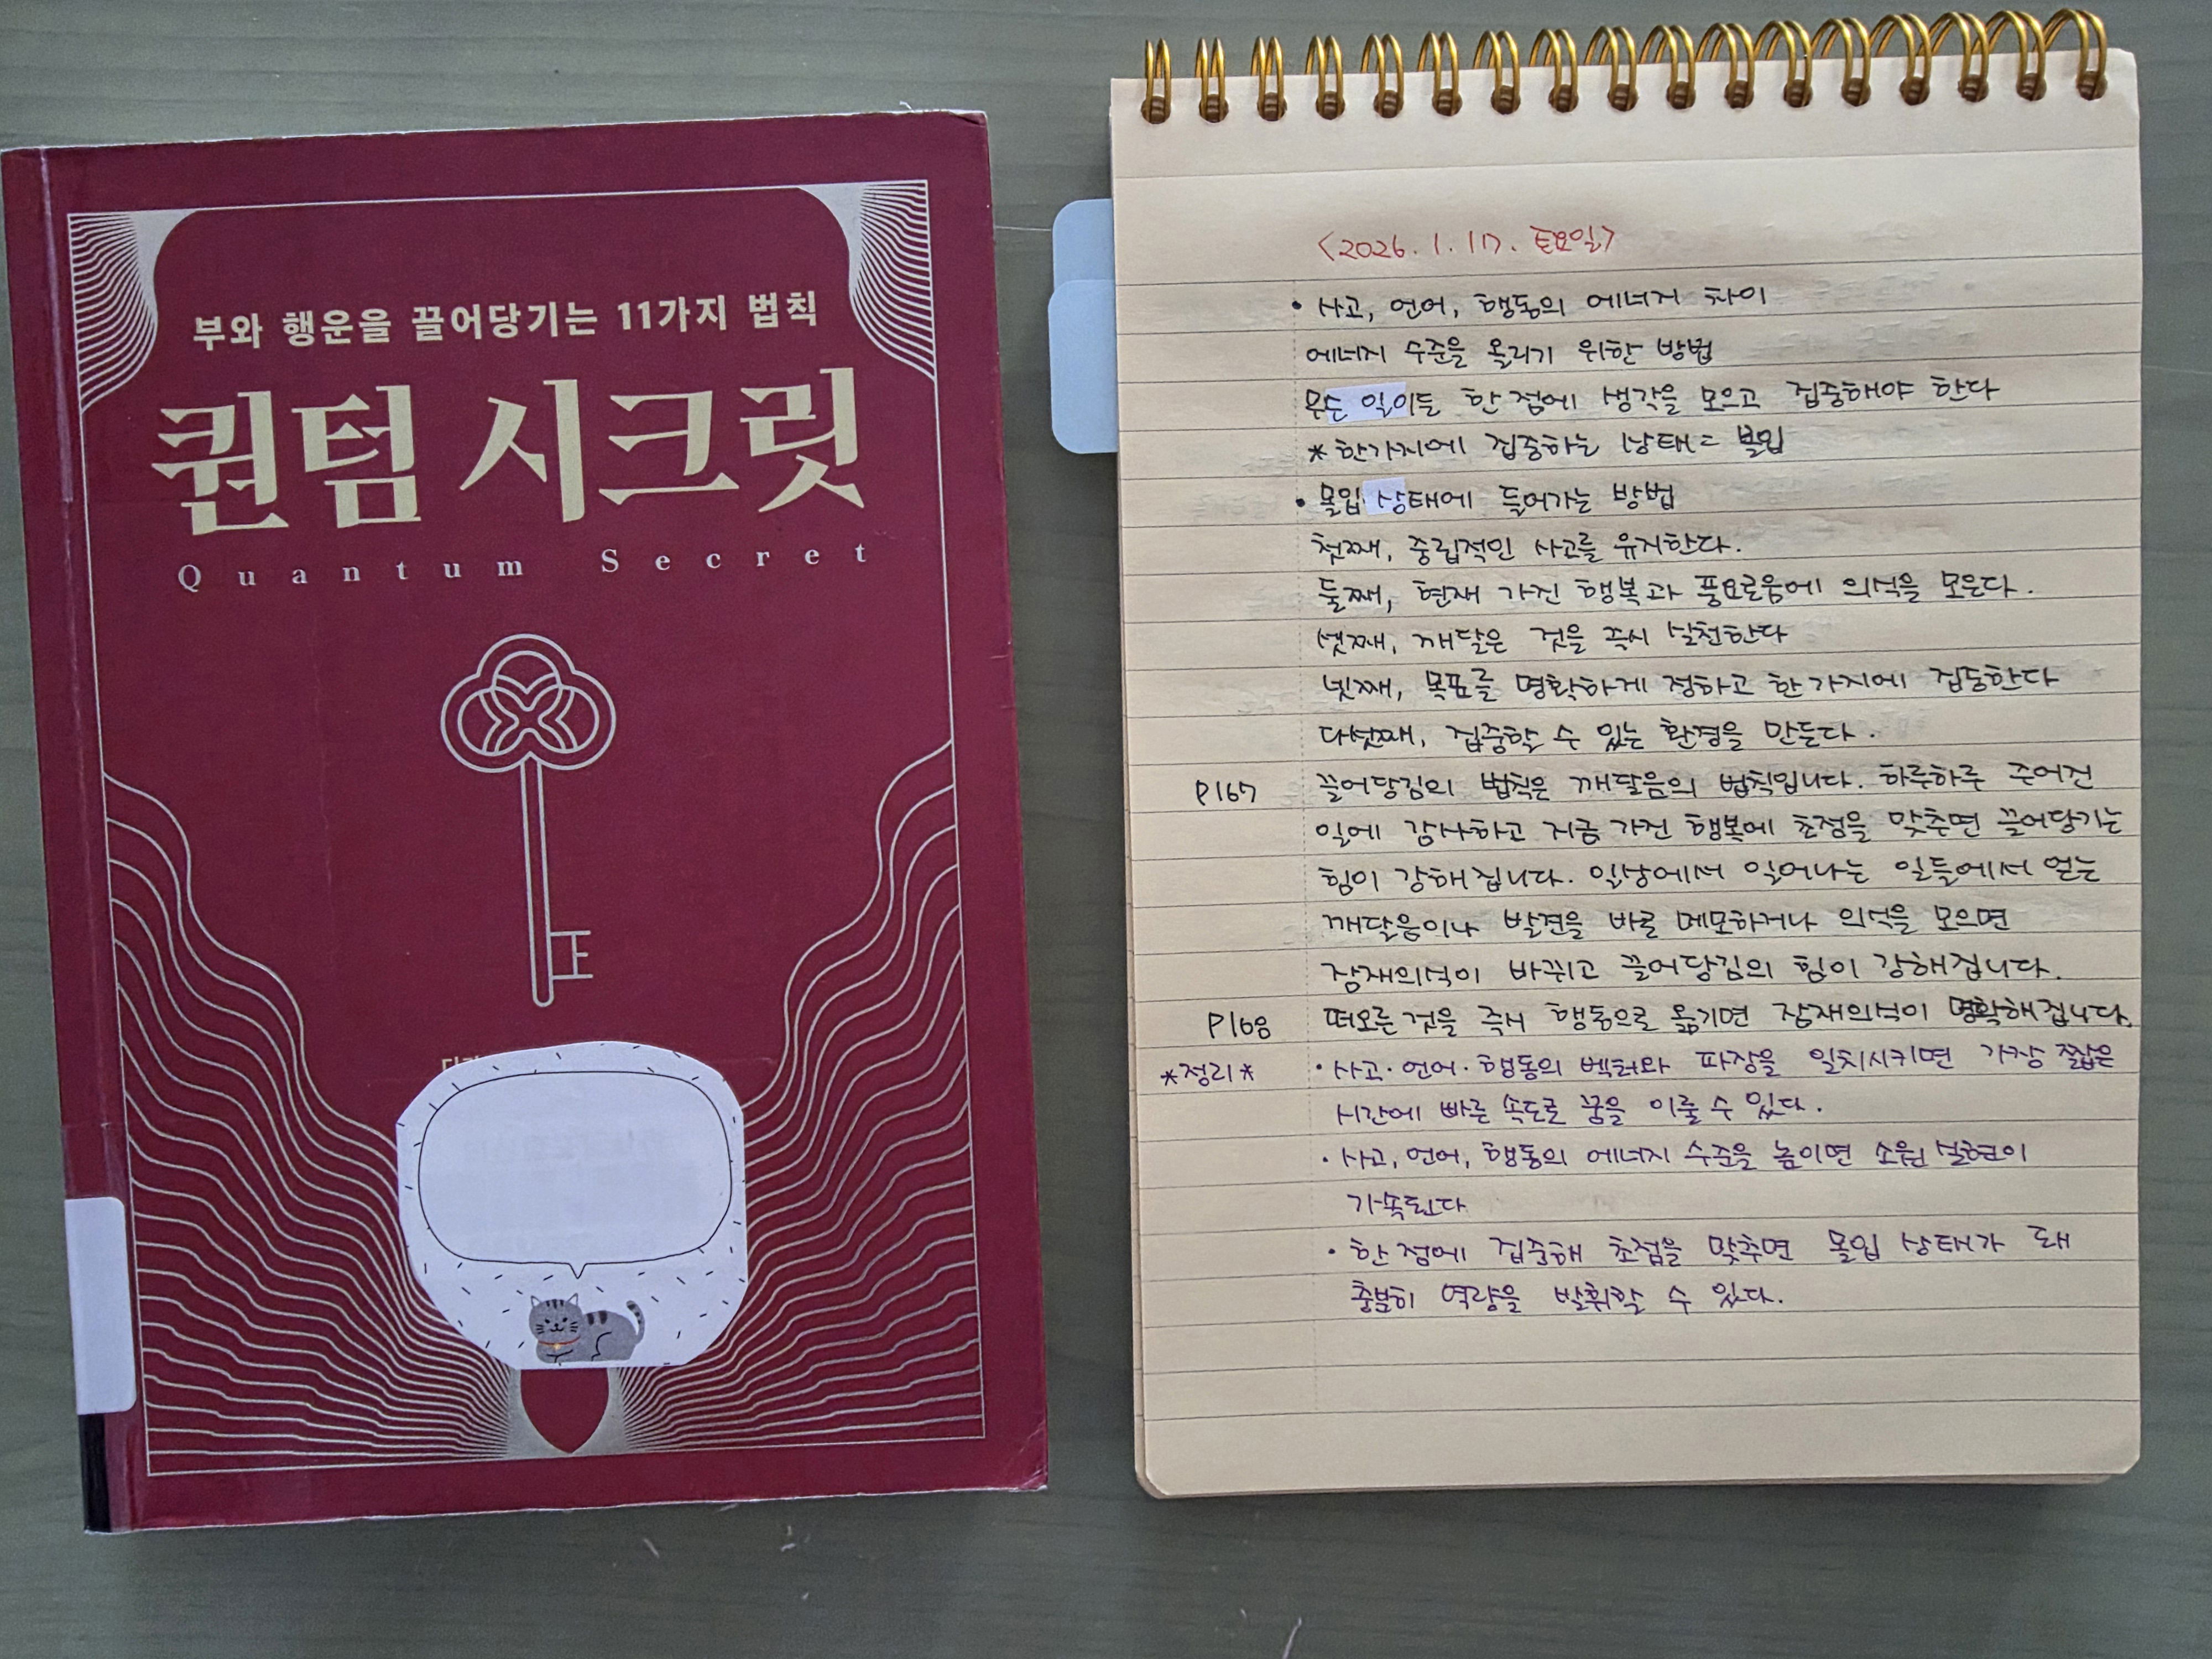 부와 행운을 끌어당기는 11가지 법칙
퀀텀 시크릿
Quantum Secret
<2026. 1. 17. 토요일>
• 사고, 언어, 행동의 에너지 차이
에너지 수준을 올리기 위한 방법
무슨 일이든 한 점에 생각을 모으고 집중해야 한다
* 한가지에 집중하는 상태 = 몰입
• 몰입 상태에 들어가는 방법
첫째, 중립적인 사고를 유지한다.
둘째, 현재 가진 행복과 풍요로움에 의식을 모은다.
셋째, 깨달은 것을 즉시 실천한다
넷째, 목표를 명확하게 정하고 한 가지에 집중한다
다섯째, 집중할 수 있는 환경을 만든다.
P167 끌어당김의 법칙은 깨달음의 법칙입니다. 하루하루 주어진
일에 감사하고 지금 가진 행복에 초점을 맞추면 끌어당기는
힘이 강해집니다. 일상에서 일어나는 일들에서 얻는
깨달음이나 발견을 바로 메모하거나 의식을 모으면
잠재의식이 바뀌고 끌어당김의 힘이 강해집니다.
P168 떠오른 것을 즉시 행동으로 옮기면 잠재의식이 명확해집니다.
*정리* • 사고·언어·행동의 벡터와 파장을 일치시키면 가장 짧은
시간에 빠른 속도로 꿈을 이룰 수 있다.
• 사고, 언어, 행동의 에너지 수준을 높이면 소원 실현이
가속된다
• 한 점에 집중해 초점을 맞추면 몰입 상태가 돼
충분히 역량을 발휘할 수 있다.